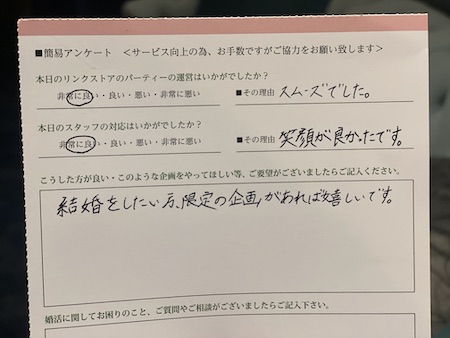 ■簡易アンケート ＜サービス向上の為、お手数ですがご協力をお願い致します＞
本日のリンクストアのパーティーの運営はいかがでしたか？
非常に良い・良い・悪い・非常に悪い ■その理由 スムーズでした。
本日のスタッフの対応はいかがでしたか？
非常に良い・良い・悪い・非常に悪い ■その理由 笑顔が良かったです。
こうした方が良い・このような企画をやってほしい等、ご要望がございましたらご記入ください。
結婚をしたい方、限定の企画があれば嬉しいです。
婚活に関してお困りのこと、ご質問やご相談がございましたらご記入下さい。